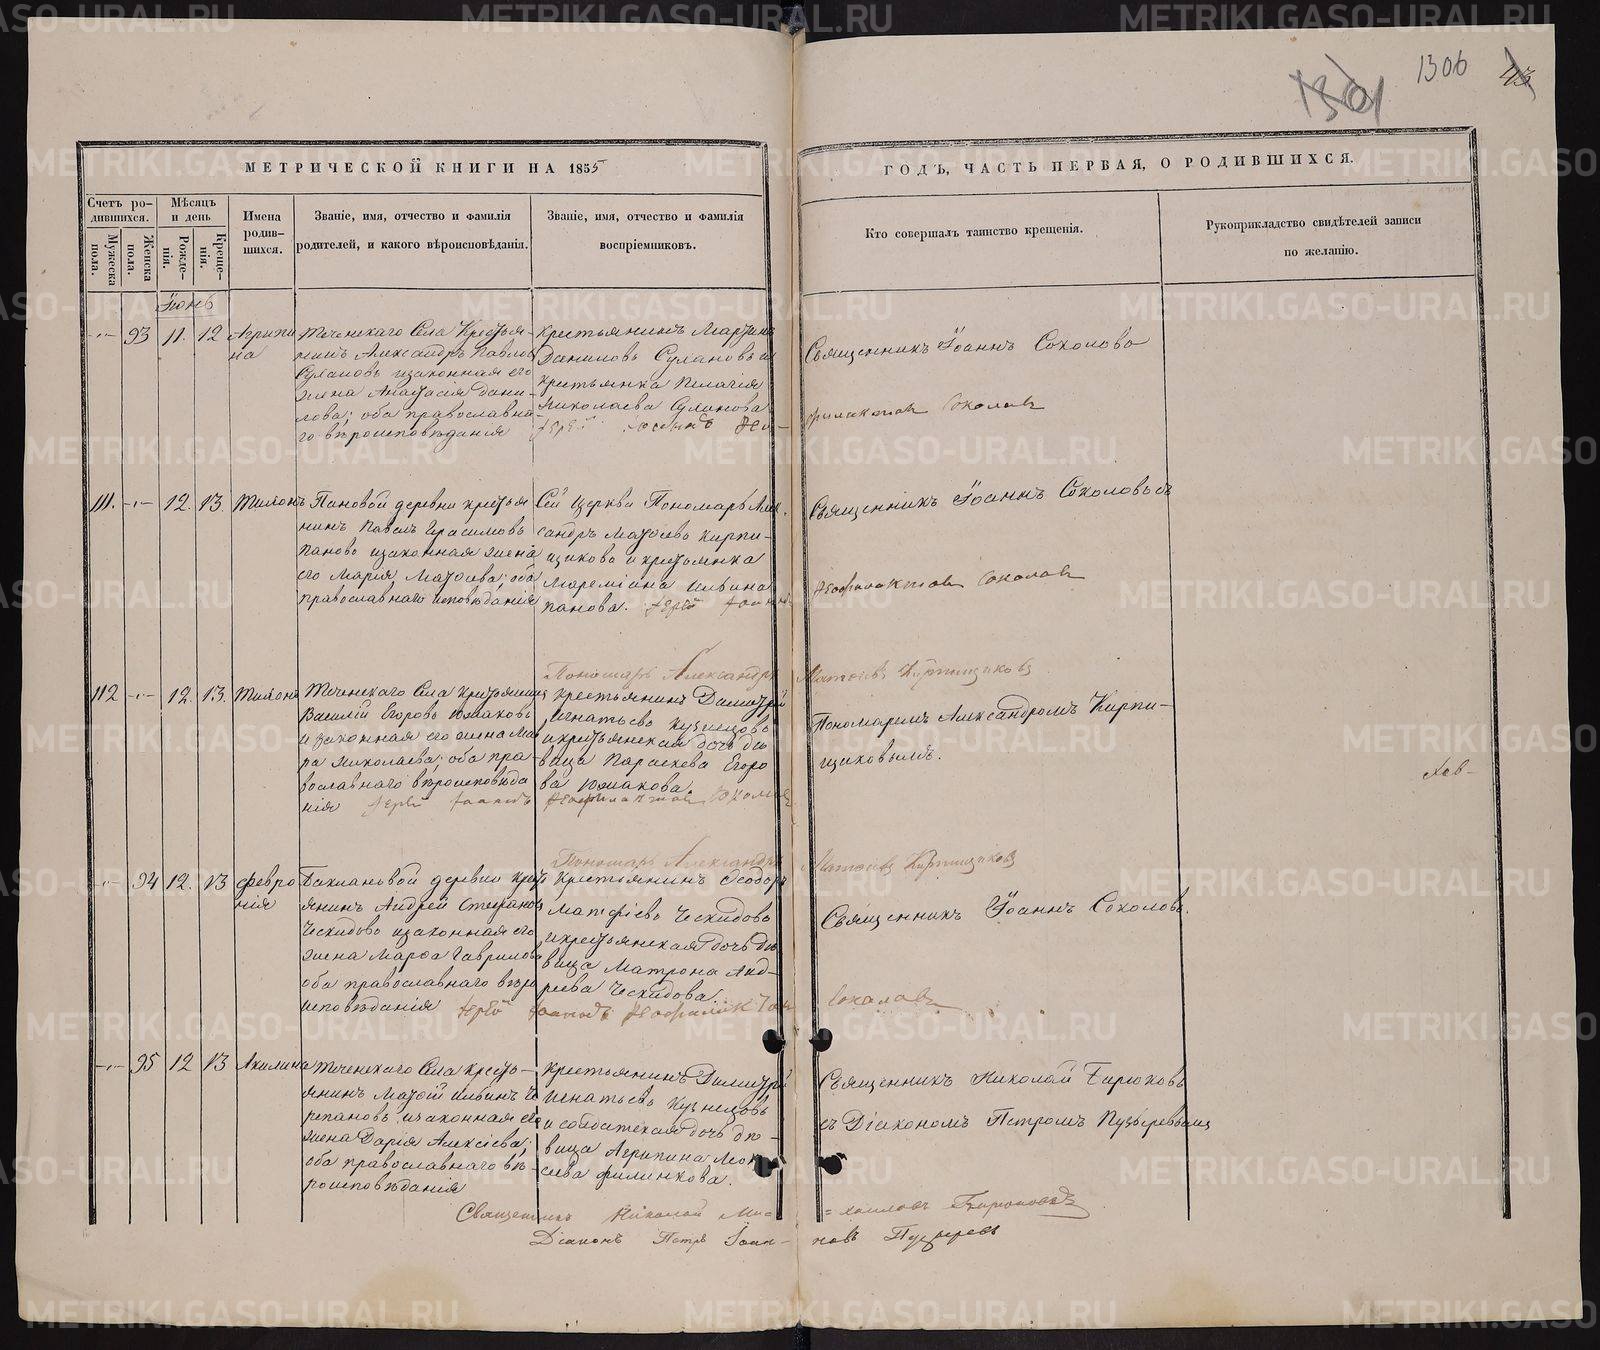 1306
1301
43
МЕТРИЧЕСКОЙ КНИГИ НА 1855
ГОДЪ, ЧАСТЬ ПЕРВАЯ, О РОДИВШИХСЯ.
Счетъ ро-
дившихся.
Мужеска
пола.
Женска
пола.
Мѣсяцъ
и день
Рожде-
нія.
Креще-
нія.
Имена
родив-
шихся.
Званіе, имя, отчество и фамилія
родителей, и какого вѣроисповѣданія.
Званіе, имя, отчество и фамилія
воспріемниковъ.
Кто совершалъ таинство крещенія.
Рукоприкладство свидѣтелей записи
по желанію.
Іюнь
93 11. 12
Агрипи
на
Теченскаго Села Крестья-
нинъ Александръ Павловъ
Сулановъ изаконная его
жена Анастасія Дани-
лова; оба православна-
го вѣроисповѣданія
Крестьянинъ Мартинъ
Даниловъ Сулановъ и
крестьянка Пелагія
Николаева Суланова
Священникъ Іоаннъ Соколовъ
Іерей
филактовъ Соколовъ
111. 12. 13.
Тихонъ
Пановой деревни крестья
нинъ Павелъ Герасимовъ
Пановъ изаконная жена
его Марія Матѳеева; оба
православнаго исповѣданія
Сей Церкви Пономарь Алек.
сандръ Матѳеевъ Кирпи-
щиковъ и крестьянка
Маремiана Ильина
Панова. Іерей Іоаннъ
Священникъ Іоаннъ Соколовъ съ
Ѳеофилактовъ Соколовъ
Пономарь Александръ Матѳеевъ Кирпищиковъ
112 12. 13.
Тихонъ
Теченскаго Села Крестьянинъ
Василій Егоровъ Южаковъ
и законная его жена Мав
ра Николаева; оба пра-
вославнаго вѣроисповѣда
нія
Крестьянинъ Димитрій
Игнатьевъ Кузнецовъ
и крестьянская дочь дѣ
вица Параскева Егоро
ва Южакова.
Пономаремъ Александромъ Кирпи-
щиковымъ.
Іерей Іоаннъ Ѳеофилактовъ Соколовъ
Пономарь Александръ Матѳеевъ Кирпищиковъ
94 12. 13
Февро
нія
Баклановой деревни крест
янинъ Андрей Стефановъ
Ческидовъ изаконная его
жена Марѳа Гаврилова
оба православнаго вѣро
исповѣданія
Крестьянинъ Ѳеодоръ
Матфіевъ Ческидовъ
и крестьянская дочь дѣ
вица Матрона Анд-
реева Ческидова.
Священникъ Іоаннъ Соколовъ.
Іерей Іоаннъ Ѳеофилактовъ Соколовъ
95 12 13
Акилина
Теченскаго Села Кресть-
янинъ Матѳій Ильинъ Че
репановъ, изаконная его
жена Дарія Алексіева;
оба православнаго вѣ-
роисповѣданія
Крестьянинъ Димитрій
Игнатьевъ Кузнецовъ
и солдатская дочь дѣ-
вица Агрипина Мои
сеева Филинкова.
Священникъ Николай Бирюковъ
съ Діакономъ Петромъ Пузыревымъ
Священникъ Николай Ми-
=хаиловъ Бирюковъ
Діаконъ Петръ Іоан-
новъ Пузыревъ